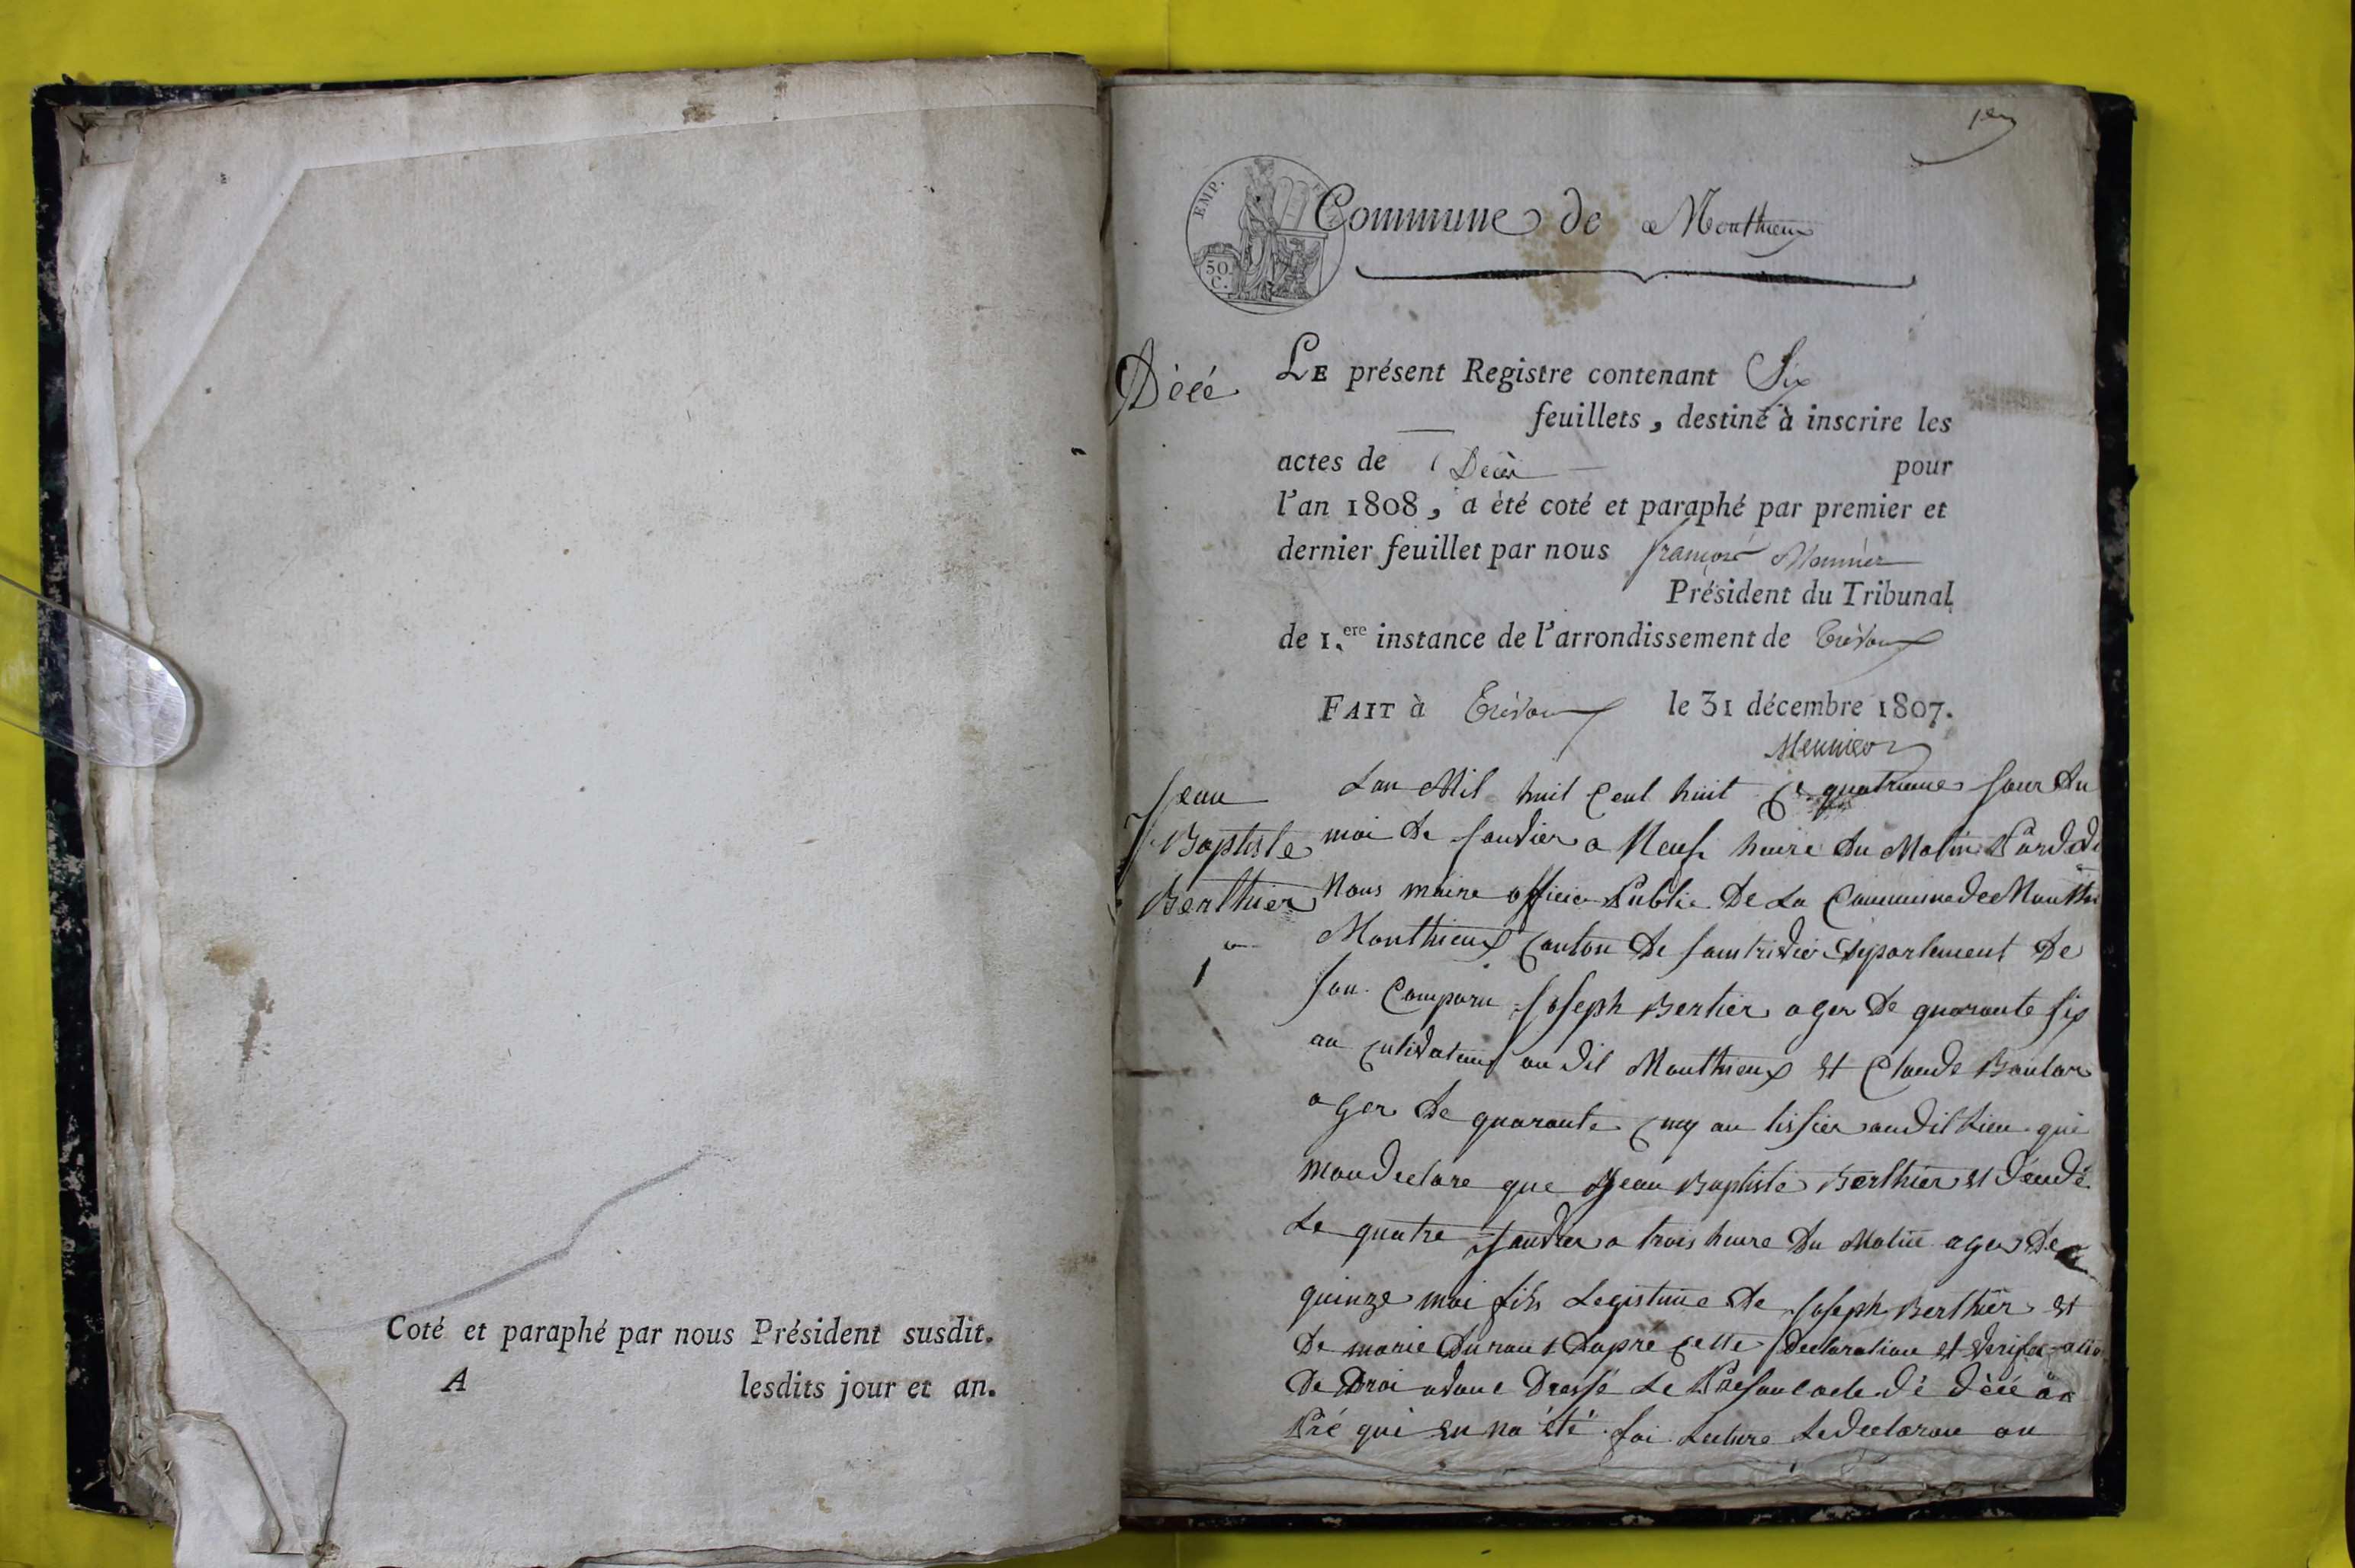 Coté et paraphé par nous Président susdit.
A lesdits jour et an.
1er
EMP.
50.
C.
Commune de Monthieux
Décé
LE présent Registre contenant Six
feuillets, destiné à inscrire les
actes de Décès pour
l'an 1808, a été coté et paraphé par premier et
dernier feuillet par nous françois Monnier
Président du Tribunal
de 1.ere instance de l'arrondissement de Trévoux
FAIT à Trévoux le 31 décembre 1807.
Jean
Baptiste
Berthier
1
Lan Mil huit Cent huit Ce quatrieme Jour du
moi de Janvier a Neuf heure du Matin Pardevt
Nous maire officier Public De La Commune de Month
Monthieux Canton De saintrivier Departement De
lau Comparu Joseph Bertier ager De quarante six
an Cultivateur au dit Monthieux Et Claude
ager De quarante Cinq an tissier audit Lieu qui
mon declare que Jean Baptiste Berthier Et Décudé
Le quatre Janvier a trois heure Du Matin ager De
quinze moi fils Legistime De Joseph Berthier Et
De marie Durant Dapré Cette Declaration Et
De Droi avons Dressé Le Presant acte dé décé
Pré qui En na été fai Lecture